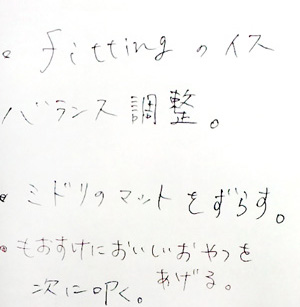 • fittingのイス
バランス調整。
• ミドリのマットをずらす。
• もおすけにおいしいおやつを
あげる。
次に叩く。